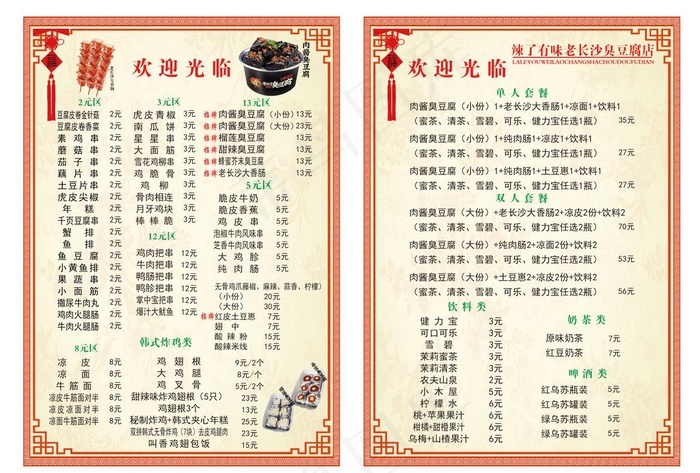 欢迎光临
肉酱臭豆腐
2元区
豆腐皮卷金针菇 2元
豆腐皮卷香菜 2元
素鸡串 2元
蘑菇串 2元
茄子串 2元
藕片串 2元
土豆片串 2元
虎皮尖椒 2元
年糕 2元
千页豆腐串 2元
蟹排 2元
鱼排 2元
鱼豆腐 2元
小黄鱼排 2元
果蔬串 2元
小面筋 2元
撒尿牛肉丸 2元
鸡肉火腿肠 2元
牛肉火腿肠 2元
8元区
凉皮 8元
凉面 8元
牛筋面 8元
凉皮牛筋面对半 8元
凉皮凉面对半 8元
凉面牛筋面对半 8元
3元区
虎皮青椒 3元
南瓜饼 3元
星星串 3元
里脊串 3元
雪花鸡柳串 3元
鸡脆骨 3元
鸡柳 3元
骨肉相连 3元
月牙鸡块 3元
棒棒脆 3元
12元区
鸡肉把串 12元
牛肉把串 12元
鸭肠把串 12元
鸭胗把串 12元
掌中宝把串 12元
爆汁大鱿鱼 12元
13元区
招牌 肉酱臭豆腐（小份）13元
招牌 肉酱臭豆腐（大份）23元
招牌 榴莲臭豆腐 13元
招牌 甜辣臭豆腐 13元
招牌 蜂蜜芥末臭豆腐 13元
招牌 老长沙大香肠 13元
5元区
脆皮牛奶 5元
脆皮香蕉 5元
鸡皮串 5元
泡椒牛肉风味串 5元
芝香牛肉风味串 5元
大鸡胗 5元
纯肉肠 5元
无骨鸡爪藤椒、麻辣、蒜香、柠檬）
（小份） 20元
（大份） 30元
招牌 红皮土豆崽 7元
翅中 7元
酸辣粉 15元
酸辣米线 15元
韩式炸鸡类
鸡翅根 9元/2个
大鸡腿 8元/个
鸡叉骨 5元/个
甜辣味炸鸡翅根（5只） 23元
鸡翅根3个 13元
秘制炸鸡+韩式夹心年糕 25元
双拼韩式无骨炸鸡（7块）去皮鸡腿肉 23元
叫香鸡翅包饭 15元
辣了有味老长沙臭豆腐店
LALEYOUWEILAOCHANGSHACHOUDOUFUDIAN
欢迎光临
单人套餐
肉酱臭豆腐（小份）1+老长沙大香肠1+凉面1+饮料1
（蜜茶、清茶、雪碧、可乐、健力宝任选1瓶） 35元
肉酱臭豆腐（小份）1+纯肉肠1+凉皮1+饮料1
（蜜茶、清茶、雪碧、可乐、健力宝任选1瓶） 27元
肉酱臭豆腐（小份）1+纯肉肠1+土豆崽1+饮料1
（蜜茶、清茶、雪碧、可乐、健力宝任选1瓶） 27元
双人套餐
肉酱臭豆腐（大份）1+老长沙大香肠2+凉皮2份+饮料2
（蜜茶、清茶、雪碧、可乐、健力宝任选2瓶） 70元
肉酱臭豆腐（大份）+纯肉肠2+凉面2份+饮料2
（蜜茶、清茶、雪碧、可乐、健力宝任选2瓶） 53元
肉酱臭豆腐（大份）+土豆崽2+凉皮2份+饮料2
（蜜茶、清茶、雪碧、可乐、健力宝任选2瓶） 56元
饮料类
健力宝 3元
可口可乐 3元
雪碧 3元
茉莉蜜茶 3元
茉莉清茶 3元
农夫山泉 2元
小木屋 5元
柠檬水 6元
桃+苹果果汁 6元
柑橘+甜橙果汁 6元
乌梅+山楂果汁 6元
奶茶类
原味奶茶 7元
红豆奶茶 7元
啤酒类
红乌苏瓶装 5元
红乌苏罐装 5元
绿乌苏瓶装 5元
绿乌苏罐装 5元